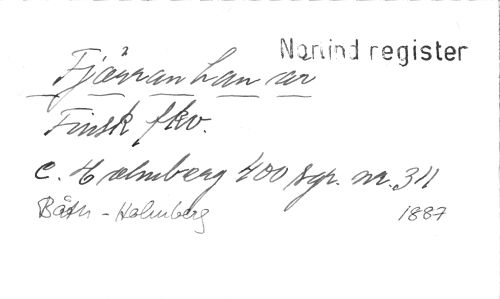 Nonind register
Fjärran han är
Finsk fkv.
C. Holmberg 400 sgr. nr. 311
Båth - Holmberg 1887